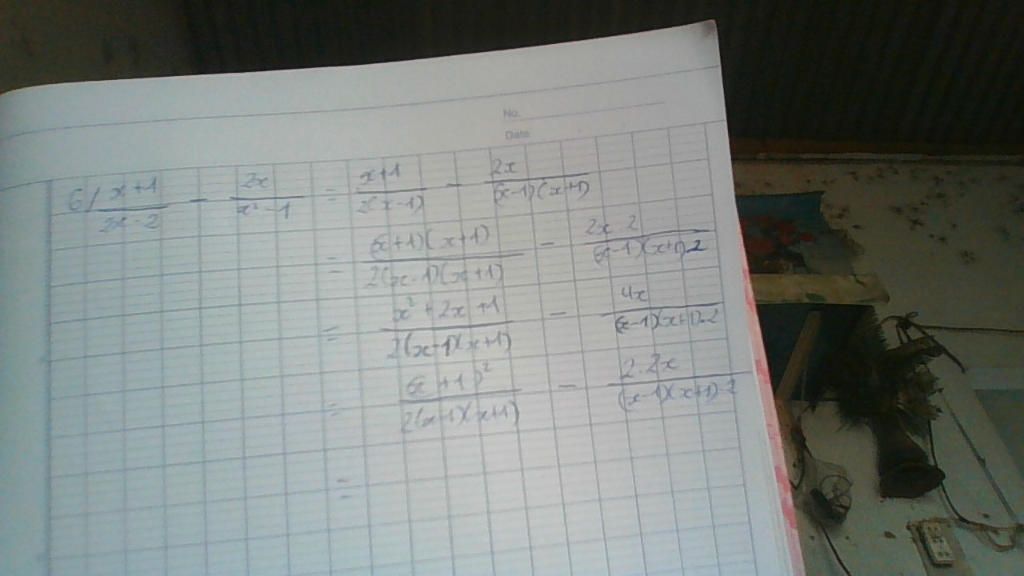 No.
Date
6/ x+1/2x-2 - 2x/x²-1 = x+1/2(x-1) - 2x/(x-1)(x+1)
= (x+1)(x+1)/2(x-1)(x+1) - 2x.2/(x-1)(x+1)2
= x²+2x+1/2(x-1)(x+1) - 4x/(x-1)(x+1).2
= (x+1)²/2(x-1)(x+1) - 2.2x/(x-1)(x+1).2
=